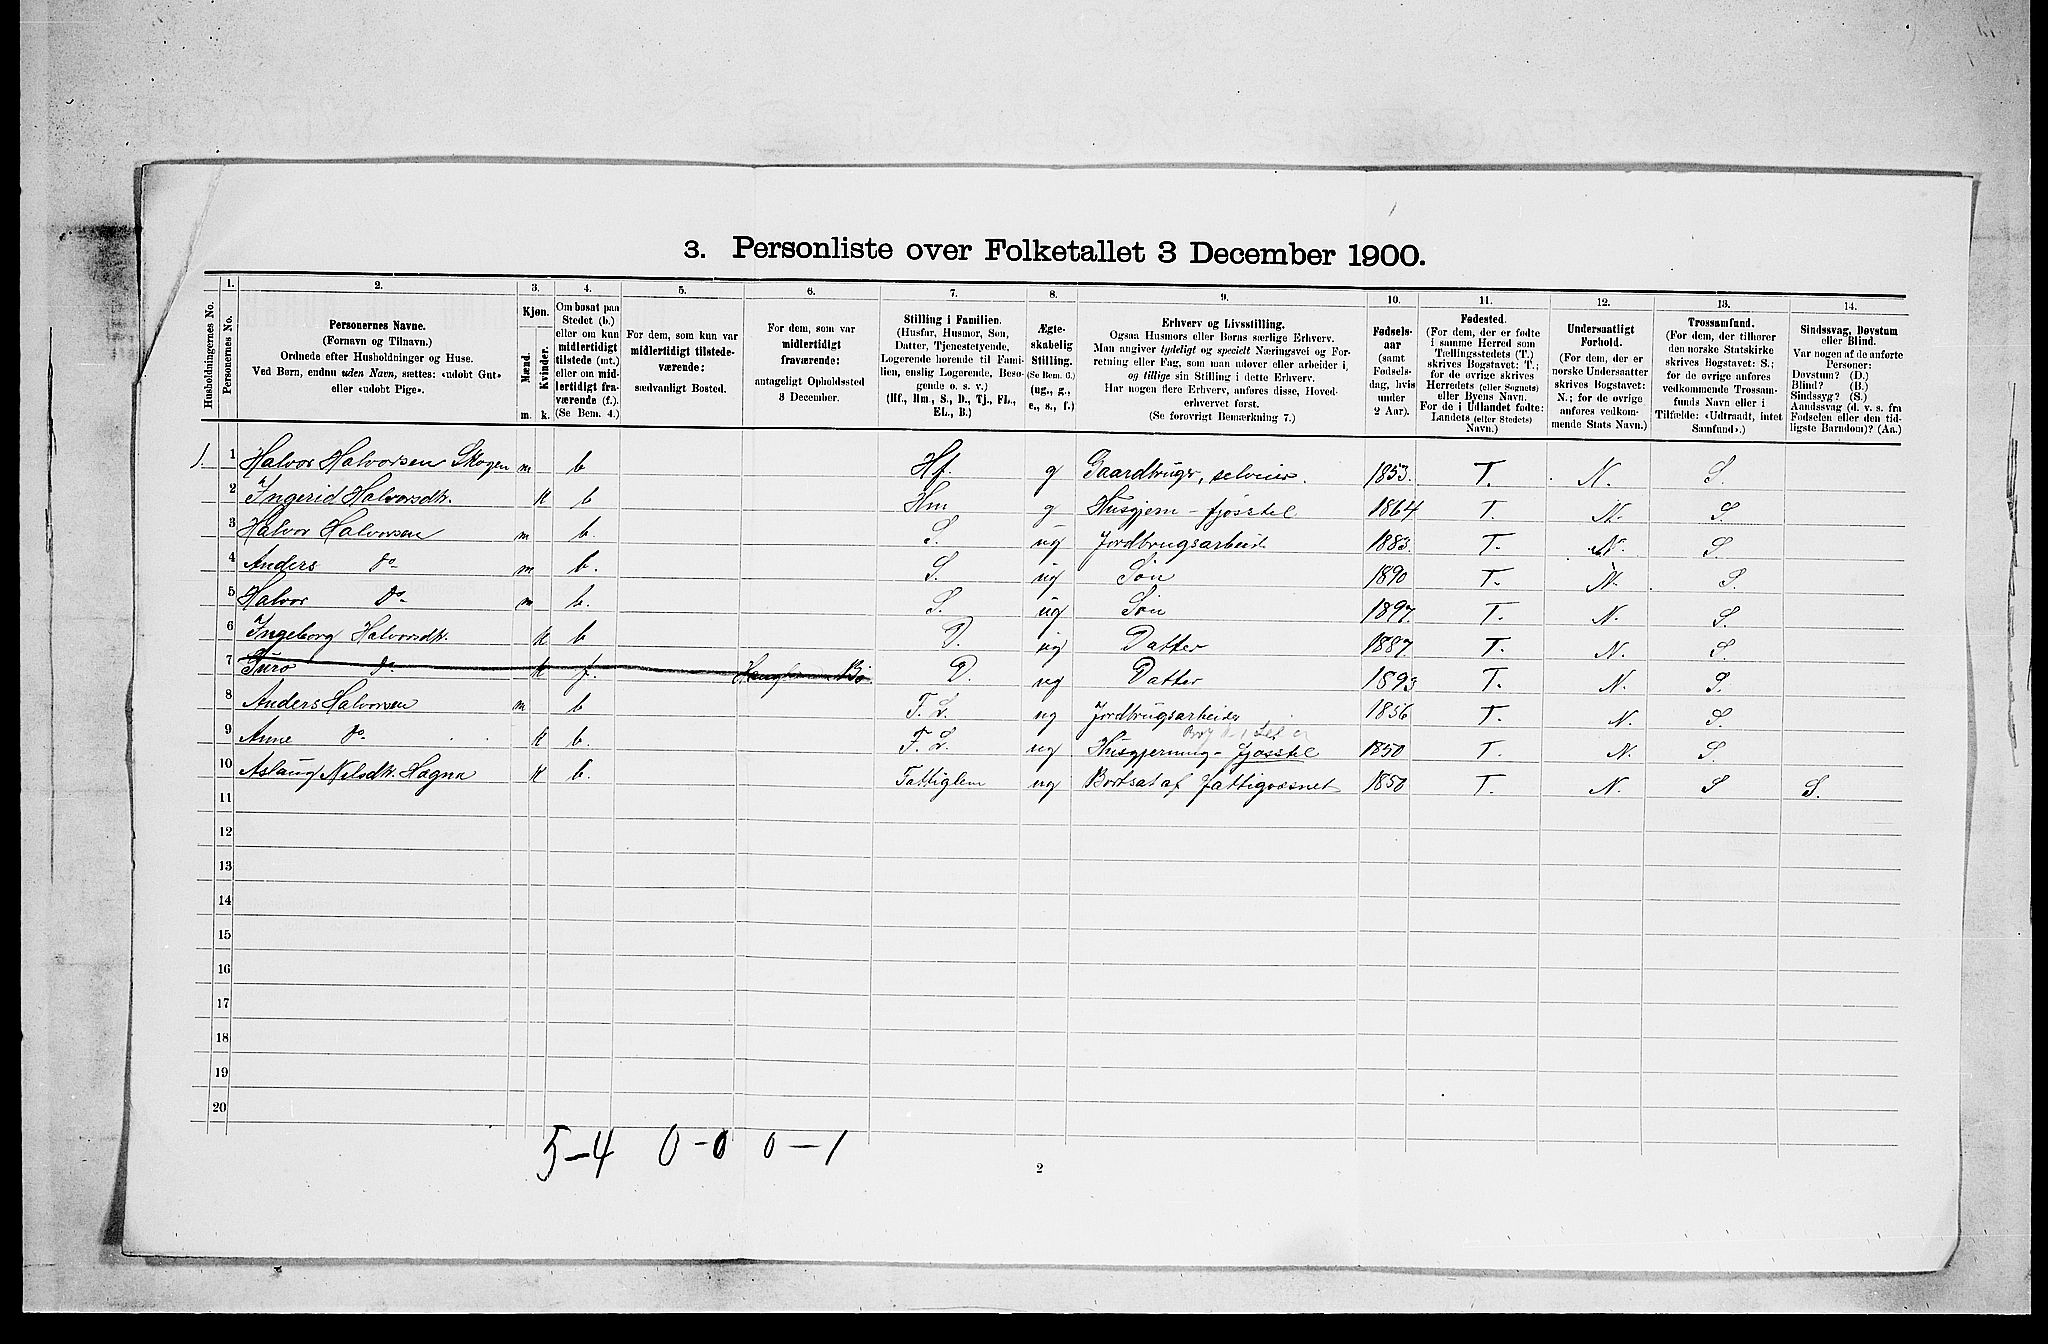 3. Personliste over Folketallet 3 December 1900.
Husholdningernes No.
1. Personernes No.
2. Personernes Navne.
(Fornavn og Tilnavn.)
Ordnede efter Husholdninger og Huse.
Ved Børn, endnu uden Navn, sættes: «udøbt Gut»
eller «udøbt Pige».
3. Kjøn.
Mænd. Kvinder.
m. k.
4. Om bosat paa
Stedet (b.)
eller om kun
midlertidigt
tilstede (mt.)
eller om mid-
lertidigt fra-
værende (f.).
(Se Bem. 4.)
5. For dem, som kun var
midlertidigt tilstede-
værende:
sædvanligt Bosted.
6. For dem, som var
midlertidigt
fraværende:
antageligt Opholdssted
3 December.
7. Stilling i Familien.
(Husfar, Husmor, Søn,
Datter, Tjenestetyende,
Logerende hørende til Fami-
lien, enslig Logerende, Besø-
gende o. s. v.)
(Hf., Hm., S., D., Tj., FL.,
EL., B.)
8. Ægte-
skabelig
Stilling.
(Se Bem. 6.)
(ug., g.,
e., s., f.)
9. Erhverv og Livsstilling.
Ogsaa Husmors eller Børns særlige Erhverv.
Man angiver tydeligt og specielt Næringsvei og For-
retning eller Fag, som man udøver eller arbeider i,
og tillige sin Stilling i dette Erhverv.
Har nogen flere Erhverv, anføres disse, Hoved-
erhvervet først.
(Se forøvrigt Bemærkning 7.)
10. Fødsels-
aar
(samt
Fødsels-
dag, hvis
under
2 Aar).
11. Fødested.
(For dem, der er fødte
i samme Herred som
Tællingsstedets (T.)
skrives Bogstavet: T.;
for de øvrige skrives
Herredets (eller Sognets)
eller Byens Navn.
For de i Udlandet fødte:
Landets (eller Stedets)
Navn.)
12. Undersaatligt
Forhold.
(For dem, der er
norske Undersaatter
skrives Bogstavet:
N.; for de øvrige
anføres vedkom-
mende Stats Navn.)
13. Trossamfund.
(For dem, der tilhører
den norske Statskirke
skrives Bogstavet: S.;
for de øvrige anføres
vedkommende Trossam-
funds Navn eller i
Tilfælde: «Udtraadt, intet
Samfund».)
14. Sindssvag, Døvstum
eller Blind.
Var nogen af de anførte
Personer:
Døvstum? (D.)
Blind? (B.)
Sindssyg? (S.)
Aandssvag (d. v. s. fra
Fødselen eller den tid-
ligste Barndom)? (Aa.)
1. 1 Halvor Halvorsen Skogen m b Hf. g Gaardbruger, selveier. 1853. T. N. S.
2 Ingerid Halvorsdtr. k b Hm g Husgjern - fjøsstel 1864 T. N. S.
3 Halvor Halvorsen m b. S. ug Jordbrugsarbeid. 1883. T. N. S.
4 Anders Do m b. S. ug Søn 1890 T. N. S.
5 Halvor Do m b. S. ug Søn 1897. T. N. S.
6 Ingeborg Halvorsdtr. k b D. ug Datter 1887. T. N. S.
7 Guro Do k f. Bø. D. ug Datter 1893 T. N. S.
8 Anders Halvorsen m b F. L. ug Jordbrugsarbeider 1856 T. N. S.
9 Anne Do k b. F. L. ug Husgjerning - fjøsstel 1850 T. N. S.
10 Aslaug Nilsdtr. Hagna k b. Fattiglem ug Bortsat af Fattigvæsnet 1850 T. N. S S.
11
12
13
14
15
16
17
18
19
20
5-4 0-0 0-1
2